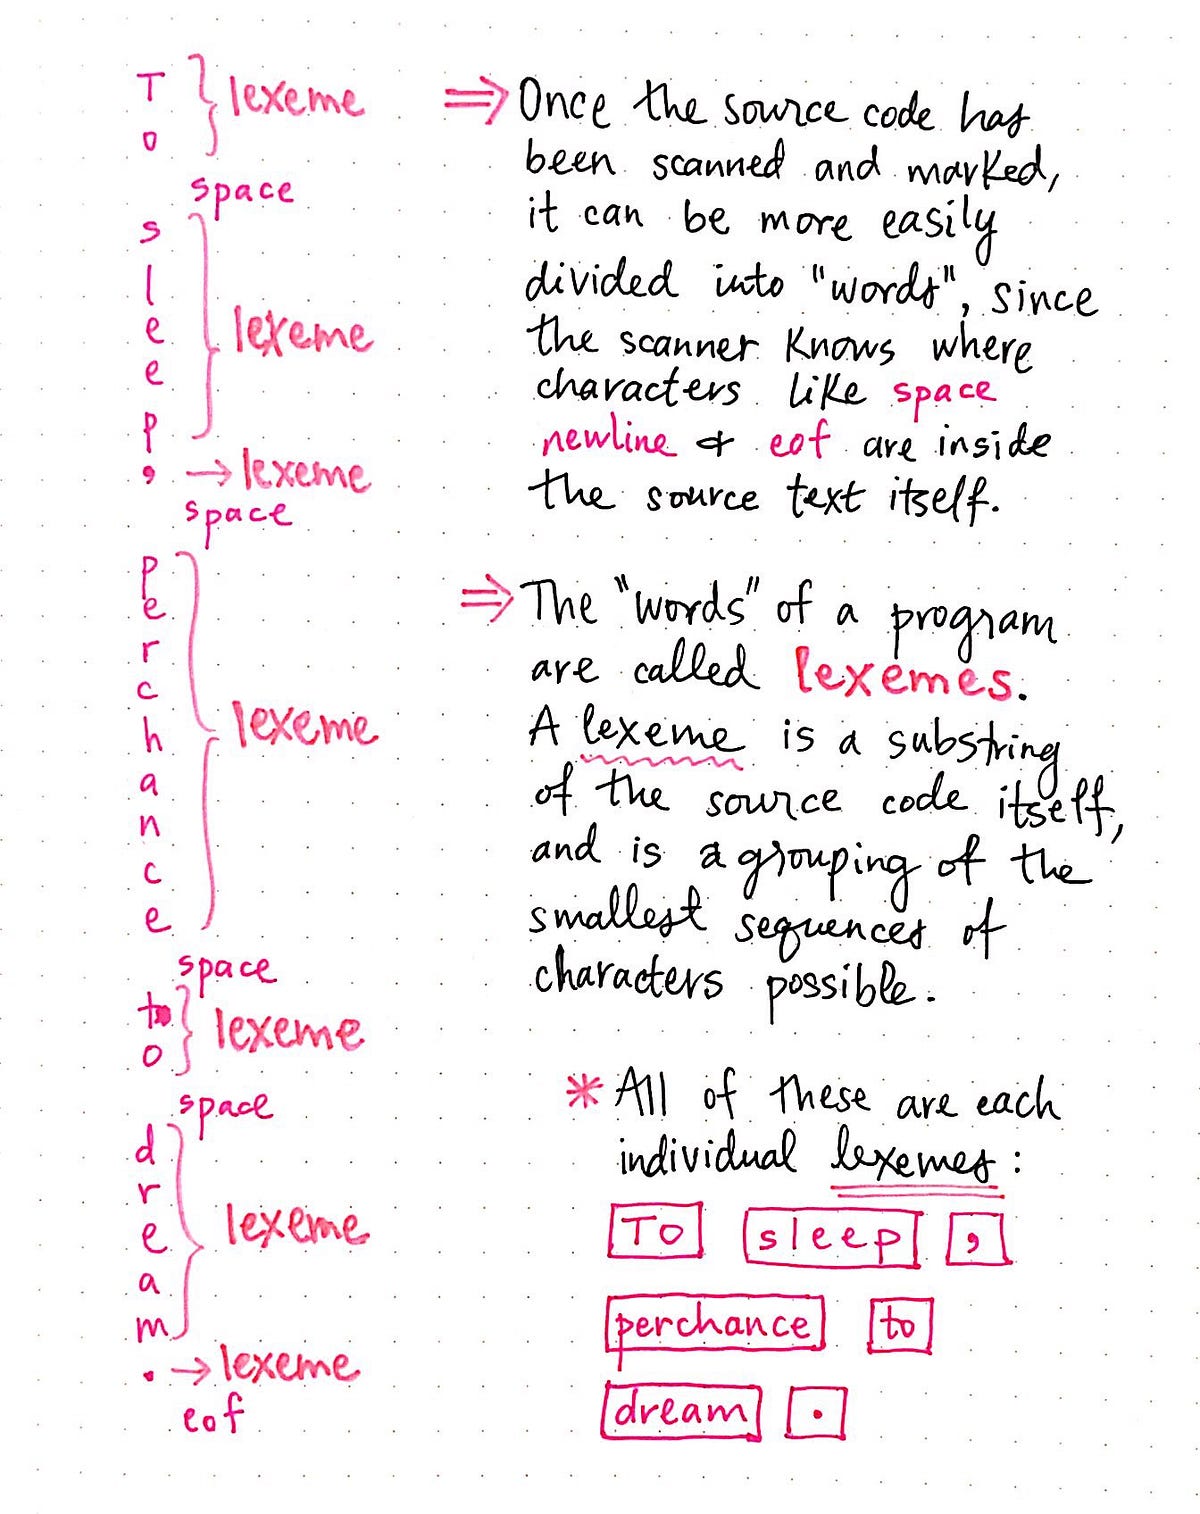 T
o
lexeme
space
s
l
e
e
p
lexeme
, → lexeme
space
p
e
r
c
h
a
n
c
e
lexeme
space
t
o
lexeme
space
d
r
e
a
m
lexeme
. → lexeme
eof
⇒ Once the source code has
been scanned and marked,
it can be more easily
divided into "words", since
the scanner knows where
characters like space
newline & eof are inside
the source text itself.
⇒ The "words" of a program
are called lexemes.
A lexeme is a substring
of the source code itself,
and is a grouping of the
smallest sequences of
characters possible.
* All of these are each
individual lexemes:
To sleep ,
perchance to
dream .